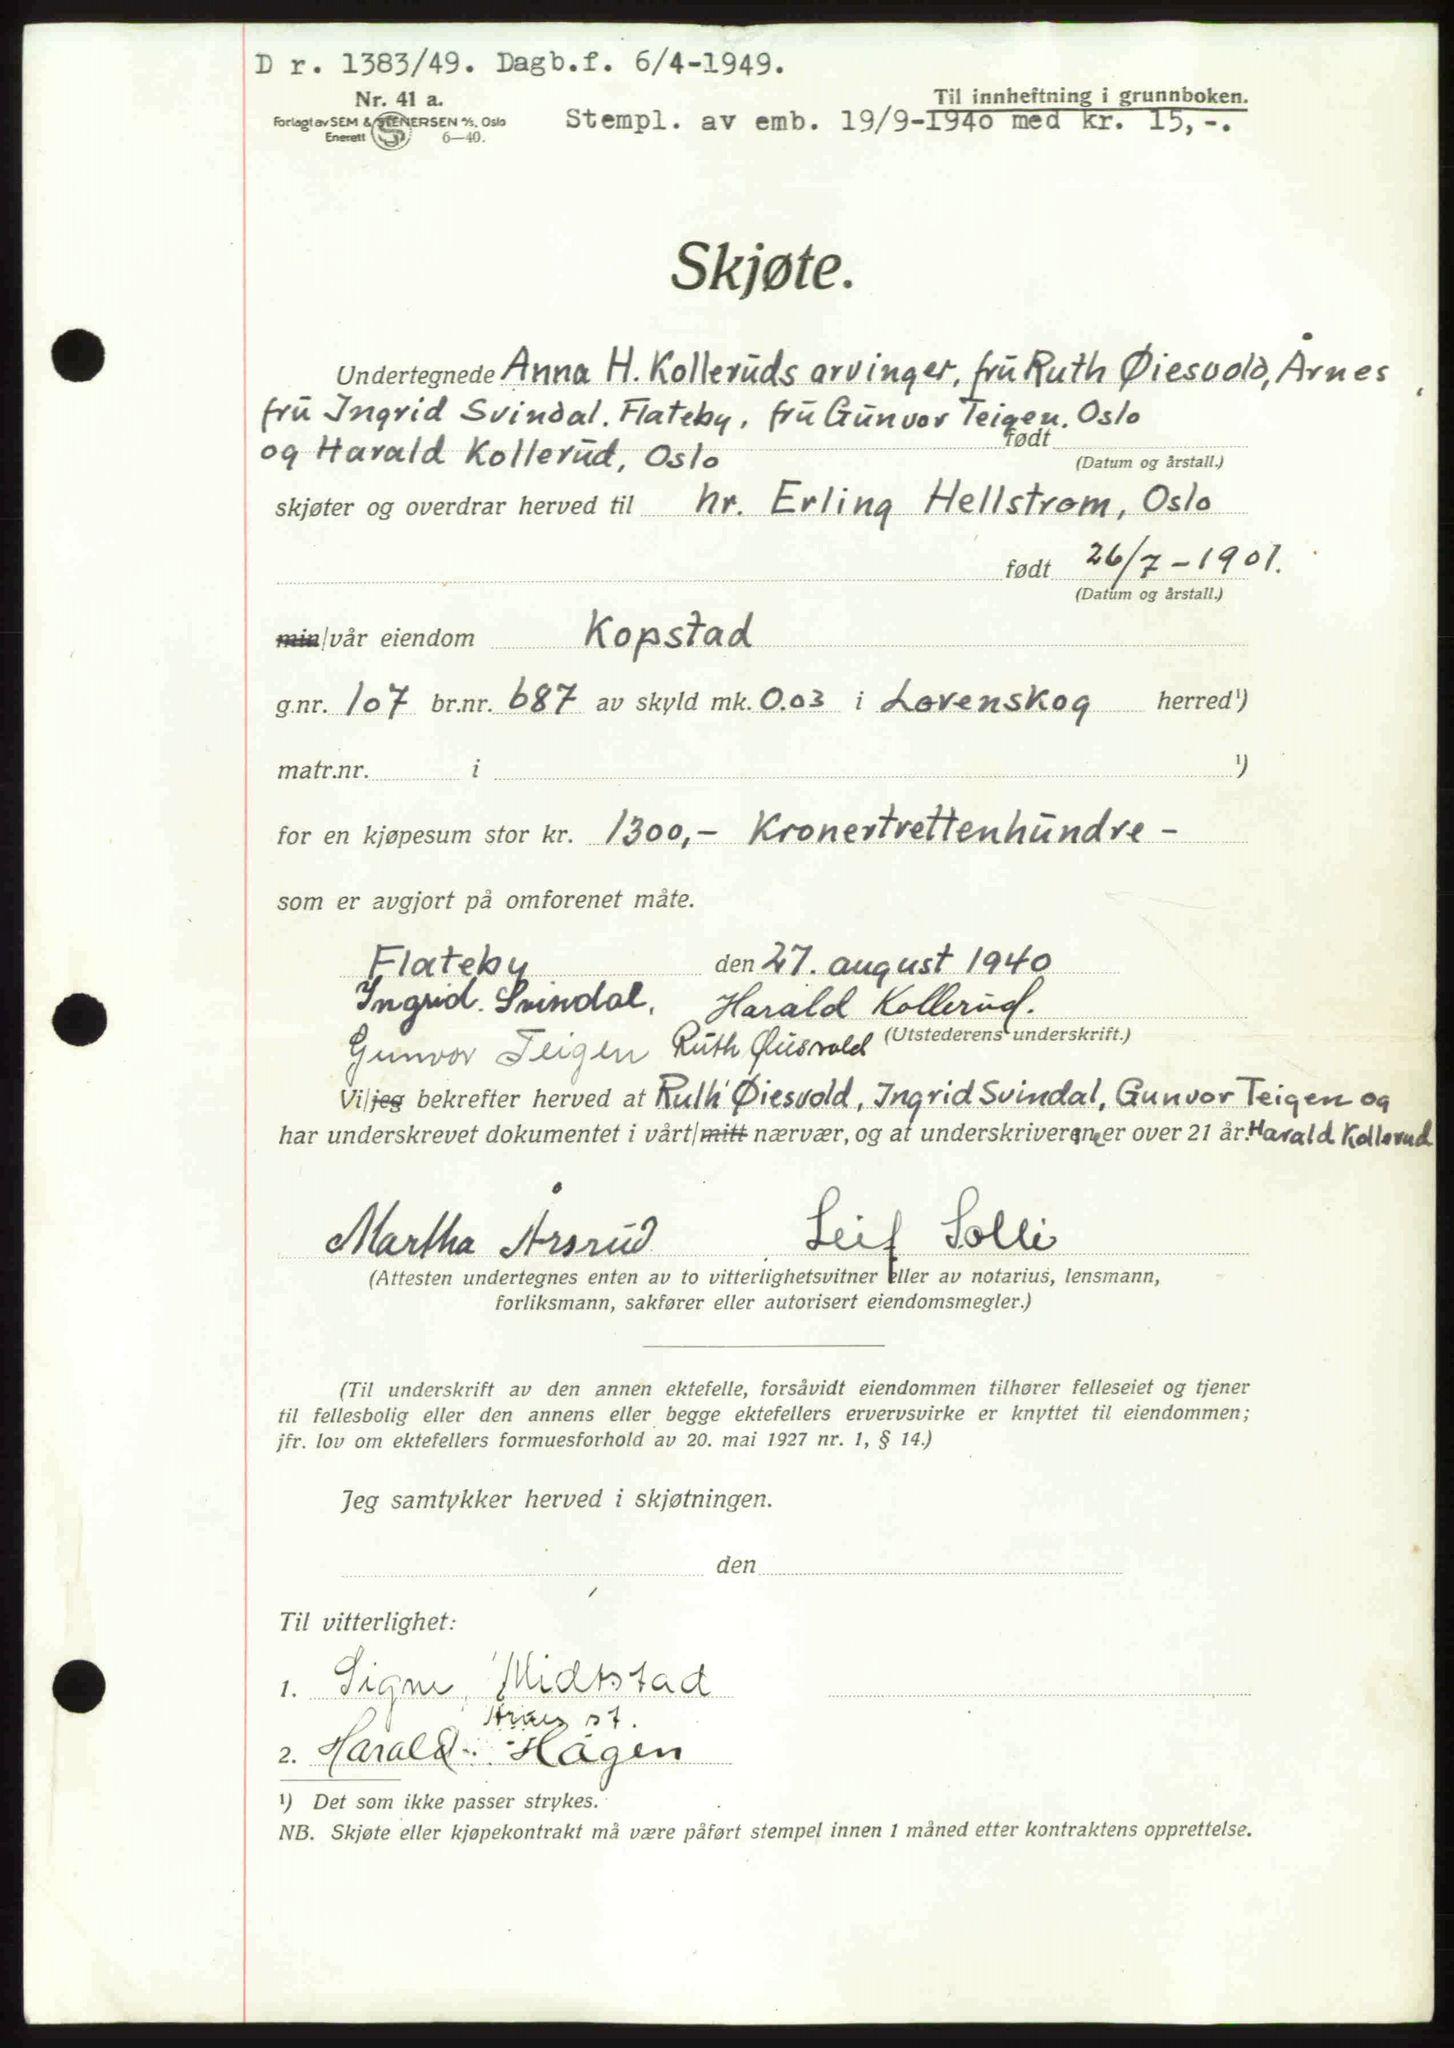 D r. 1383/49. Dagb.f. 6/4-1949.
Nr. 41 a.
Til innheftning i grunnboken.
Forlagt av SEM & STENERSEN A/S, Oslo
Enerett 6—40.
Stempl. av emb. 19/9-1940 med kr. 15,-.
Skjøte.
Undertegnede Anna H. Kolleruds arvinger, fru Ruth Øiesvold, Årnes
fru Ingrid Svindal. Flateby, fru Gunvor Teigen. Oslo
og Harald Kollerud, Oslo født
(Datum og årstall.)
skjøter og overdrar herved til hr. Erling Hellstrøm, Oslo
født 26/7-1901.
(Datum og årstall.)
min/vår eiendom Kopstad
g.nr. 107 br.nr. 687 av skyld mk. 0.03 i Lørenskog herred¹)
matr.nr. i ¹)
for en kjøpesum stor kr. 1300,- Kronertrettenhundre -
som er avgjort på omforenet måte.
Flateby den 27. august 1940
Ingrid. Svindal. Harald Kollerud.
(Utstederens underskrift.)
Gunvor Teigen Ruth Øiesvold
Vi/jeg bekrefter herved at Ruth Øiesvold, Ingrid Svindal, Gunvor Teigen og
har underskrevet dokumentet i vårt/mitt nærvær, og at underskriverene er over 21 år. Harald Kollerud
Martha Årsrud Leif Solli
(Attesten undertegnes enten av to vitterlighetsvitner eller av notarius, lensmann,
forliksmann, sakfører eller autorisert eiendomsmegler.)
(Til underskrift av den annen ektefelle, forsåvidt eiendommen tilhører felleseiet og tjener
til fellesbolig eller den annens eller begge ektefellers ervervsvirke er knyttet til eiendommen;
jfr. lov om ektefellers formuesforhold av 20. mai 1927 nr. 1, § 14.)
Jeg samtykker herved i skjøtningen.
den
Til vitterlighet:
1. Signe Midtstad
Årnes st.
2. Harald Hagen
¹) Det som ikke passer strykes.
NB. Skjøte eller kjøpekontrakt må være påført stempel innen 1 måned etter kontraktens opprettelse.